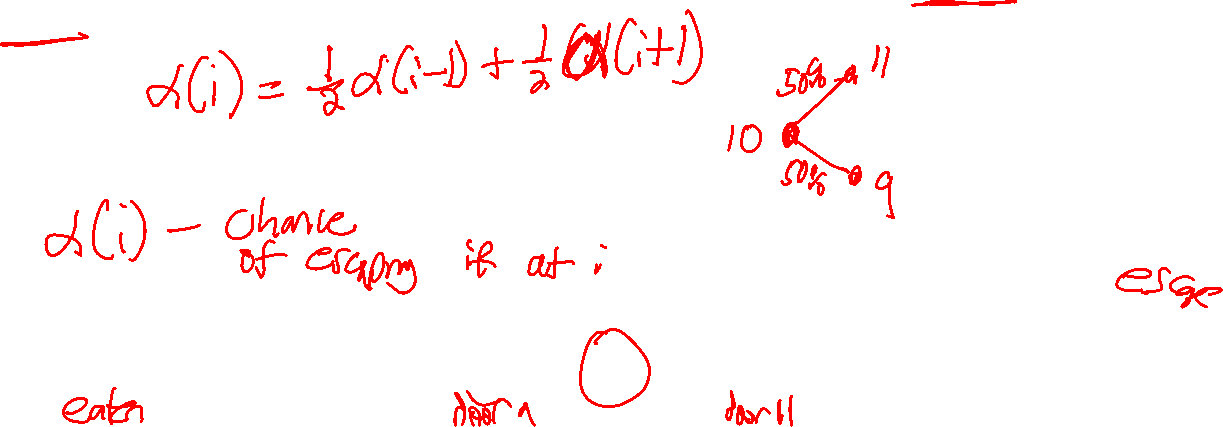 α(i) = 1/2 α(i-1) + 1/2 α(i+1)
50% 11
10
50% 9
α(i) - chance
of escaping if at i
escape
eaten door 9 door 11